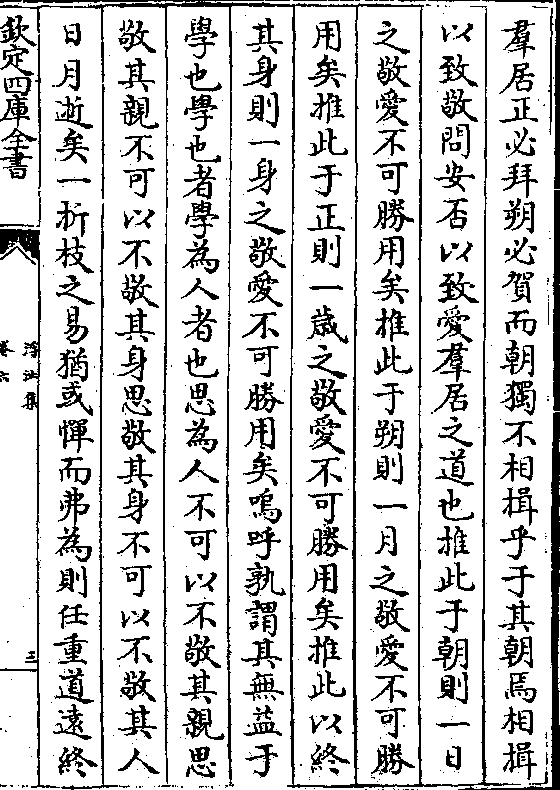 羣居正必拜朔必賀而朝獨不相揖乎于其朝焉相揖
以致敬問安否以致愛羣居之道也推此于朝則一日
之敬愛不可勝用矣推此于朔則一月之敬愛不可勝
用矣推此于正則一歲之敬愛不可勝用矣推此以終
其身則一身之敬愛不可勝用矣嗚呼孰謂其無益于
學也學也者學為人者也思為人不可以不敬其親思
敬其親不可以不敬其身思敬其身不可以不敬其人
日月逝矣一折枝之易猶或憚而弗為則任重道遠終
欽定四庫全書
浮沚集
卷六
三